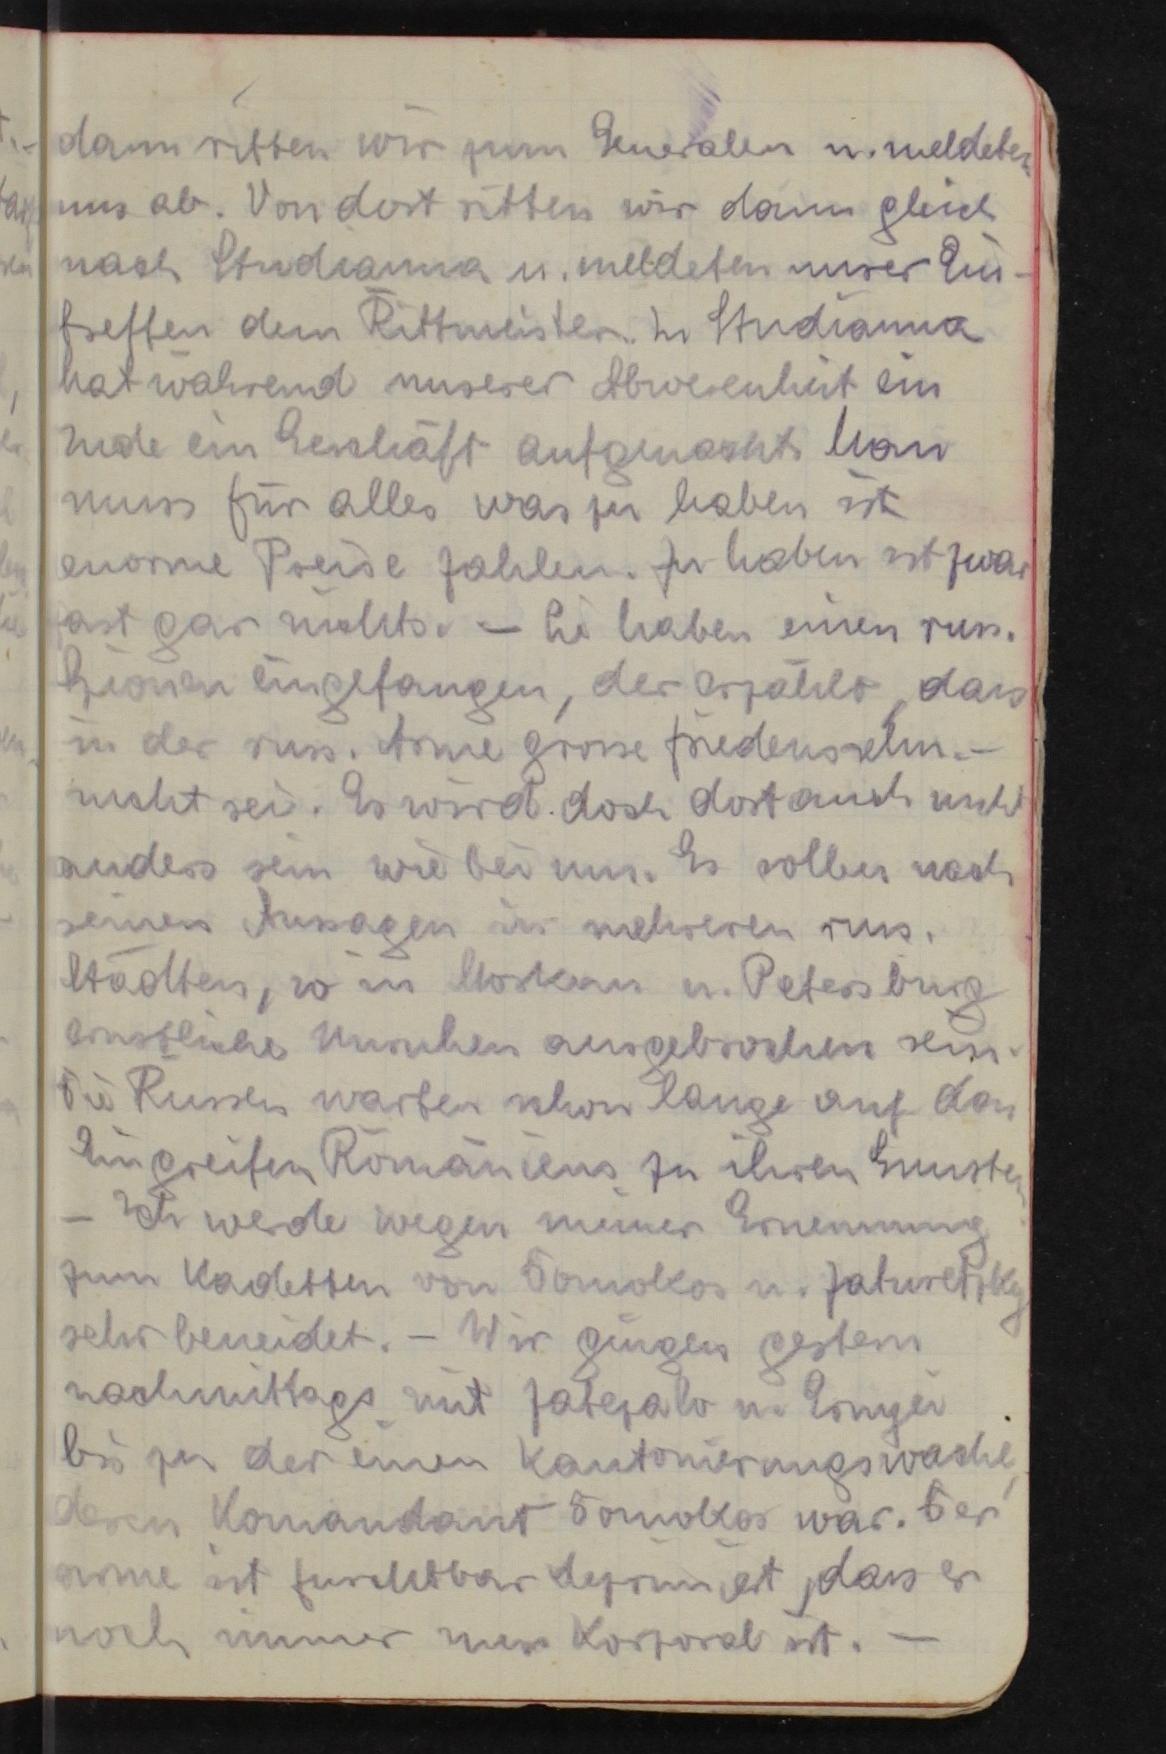 dann ritten wir zum Generalen u. meldeten
uns ab. Von dort ritten wir dann gleich
nach Studianna u. meldeten unser Ein-
treffen dem Rittmeister. In Studianna
hat während unserer Abwesenheit ein
Jude ein Geschäft aufgemacht. Man
muss für alles was zu haben ist
enorme Preise zahlen. Zu haben ist zwar
fast gar nichts. — Sie haben einen russ.
Spionen eingefangen, der erzählt, dass
in der russ. Arme grosse Friedenssehn-
sucht sei. Es wird doch dort auch nicht
anders sein wie bei uns. Es sollen nach
seinen Aussagen in mehreren russ.
Städten, so in Moskau u. Petersburg
ernstliche Unruhen ausgebrochen sein.
Die Russen warten schon lange auf das
Eingreifen Romäniens zu ihren Gunsten.
— Ich werde wegen meiner Ernennung
zum Kadetten von Domokos u. Zaturetzky
sehr beneidet. — Wir gingen gestern
nachmittags mit u.
bis zu der einen Kantonierungswache,
deren Komandant Domokos war. Der
arme ist furchtbar deprimiert, dass er
noch immer nur Korporal ist. —